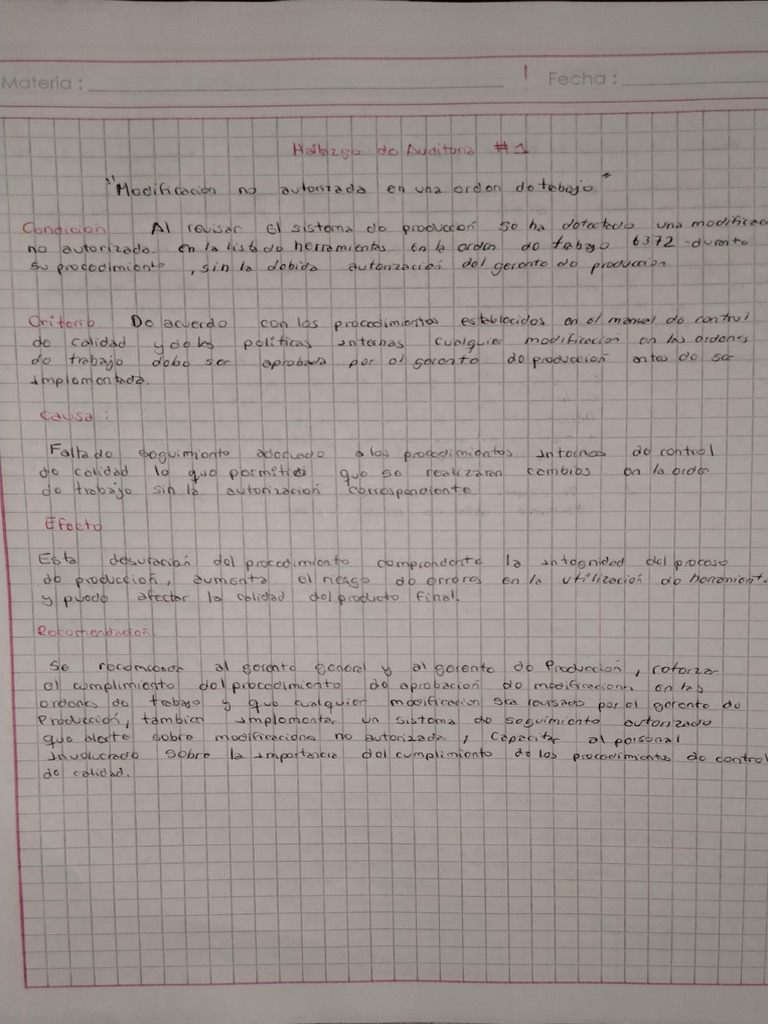 Materia :
Fecha :
Hallazgo de Auditoria #1
"Modificacion no autorizada en una orden de tebajo"
Condición Al revisar el sistema de producción se ha detectado una modificac
no autorizada en la lista de herramientas en la orden de trabajo 6372 durante
su procedimiento, sin la debida autorización del gerente de producción
Criterio De acuerdo con los procedimientos establecidos en el manual de control
de calidad y de las politicas internas cualquier modificacion en las ordenes
de trabajo debe ser aprobada por el gerente de producción antes de ser
implementada.
Causa :
Falta de seguimiento adecuado a los procedimientos internos de control
de calidad lo que permitió que se realizaran cambios en la orden
de trabajo sin la autorización correspondiente
Efecto
Esta desviación del procedimiento compromete la integridad del proceso
de producción, aumenta el riesgo de errores en la utilización de herramient.
y puede afectar la calidad del producto final.
Recomendación
Se recomienda al gerente general y al gerente de Producción, reforzar
el cumplimiento del procedimiento de aprobacion de modificaciones en las
ordenes de trabajo y que cualquier modificacion sea revisado por el gerente de
Producción, tambien implementar un sistema de seguimiento autorizado
que alerte sobre modificaciones no autorizada, capacitar al personal
involucrado sobre la importancia del cumplimiento de los procedimientos de control
de calidad.